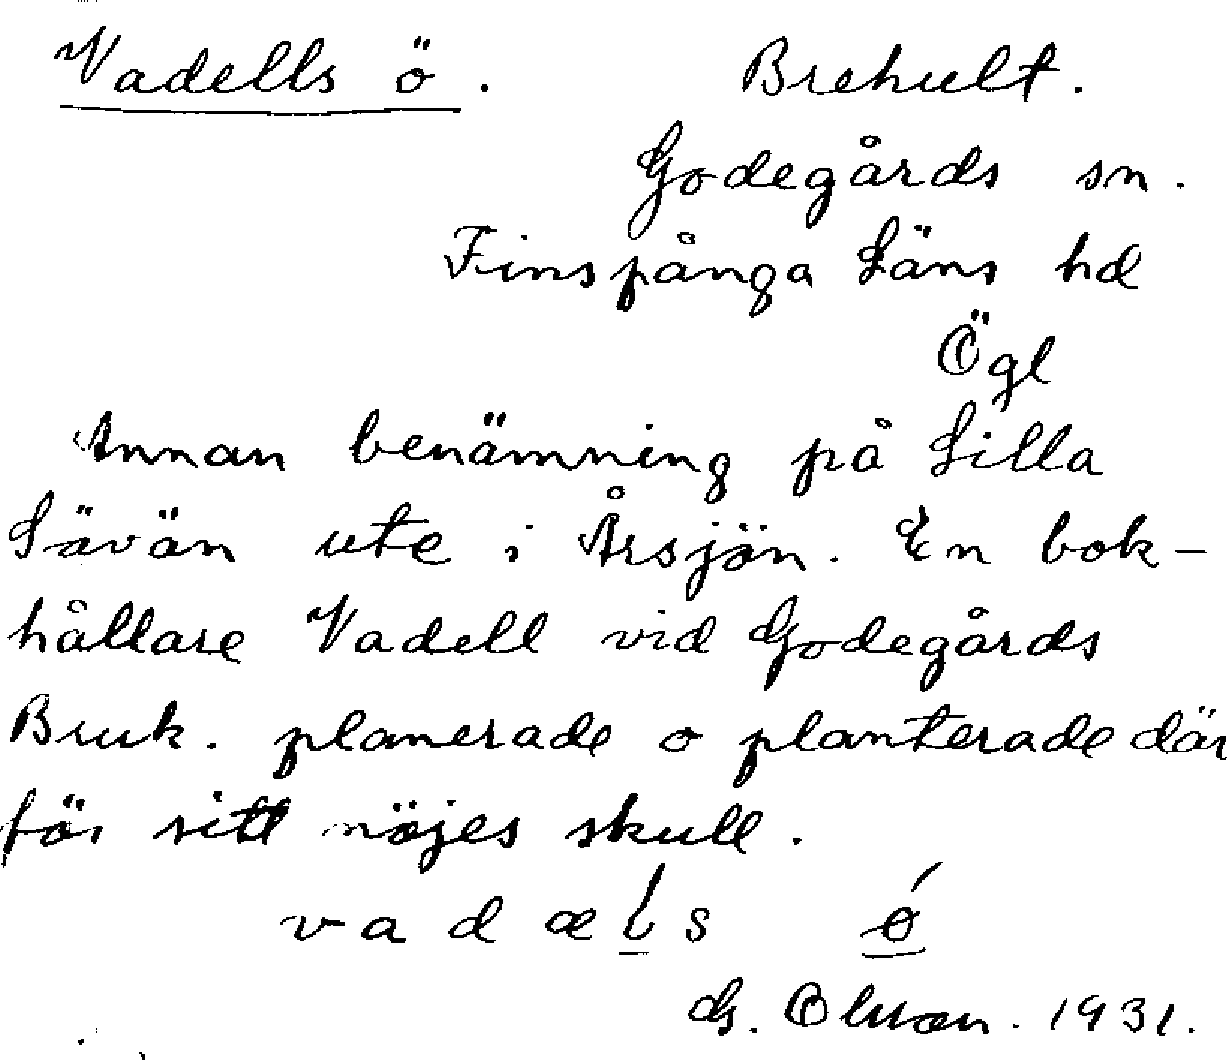 Vadells ö. Brehult.
Godegårds sn.
Finspånga Läns hd
Ögl
Annan benämning på Lilla
Lävän ute i Årsjön. En bok-
hållare Vadell vid Godegårds
Bruk. planerade o planterade där
för sitt nöjes skull.
v a d æ l s ǿ
G. Olson. 1931.